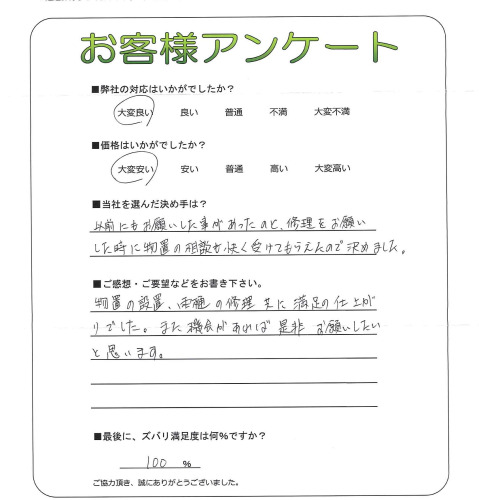 お客様アンケート
■弊社の対応はいかがでしたか？
大変良い 良い 普通 不満 大変不満
■価格はいかがでしたか？
大変安い 安い 普通 高い 大変高い
■当社を選んだ決め手は？
以前にもお願いした事があったのと、修理をお願い
した時に物置の相談も快く受けてもらえたので決めました。
■ご感想・ご要望などをお書き下さい。
物置の設置、雨樋の修理 共に 満足の仕上が
りでした。また機会があれば是非 お願いしたい
と思います。
■最後に、ズバリ満足度は何％ですか？
100 ％
ご協力頂き、誠にありがとうございました。